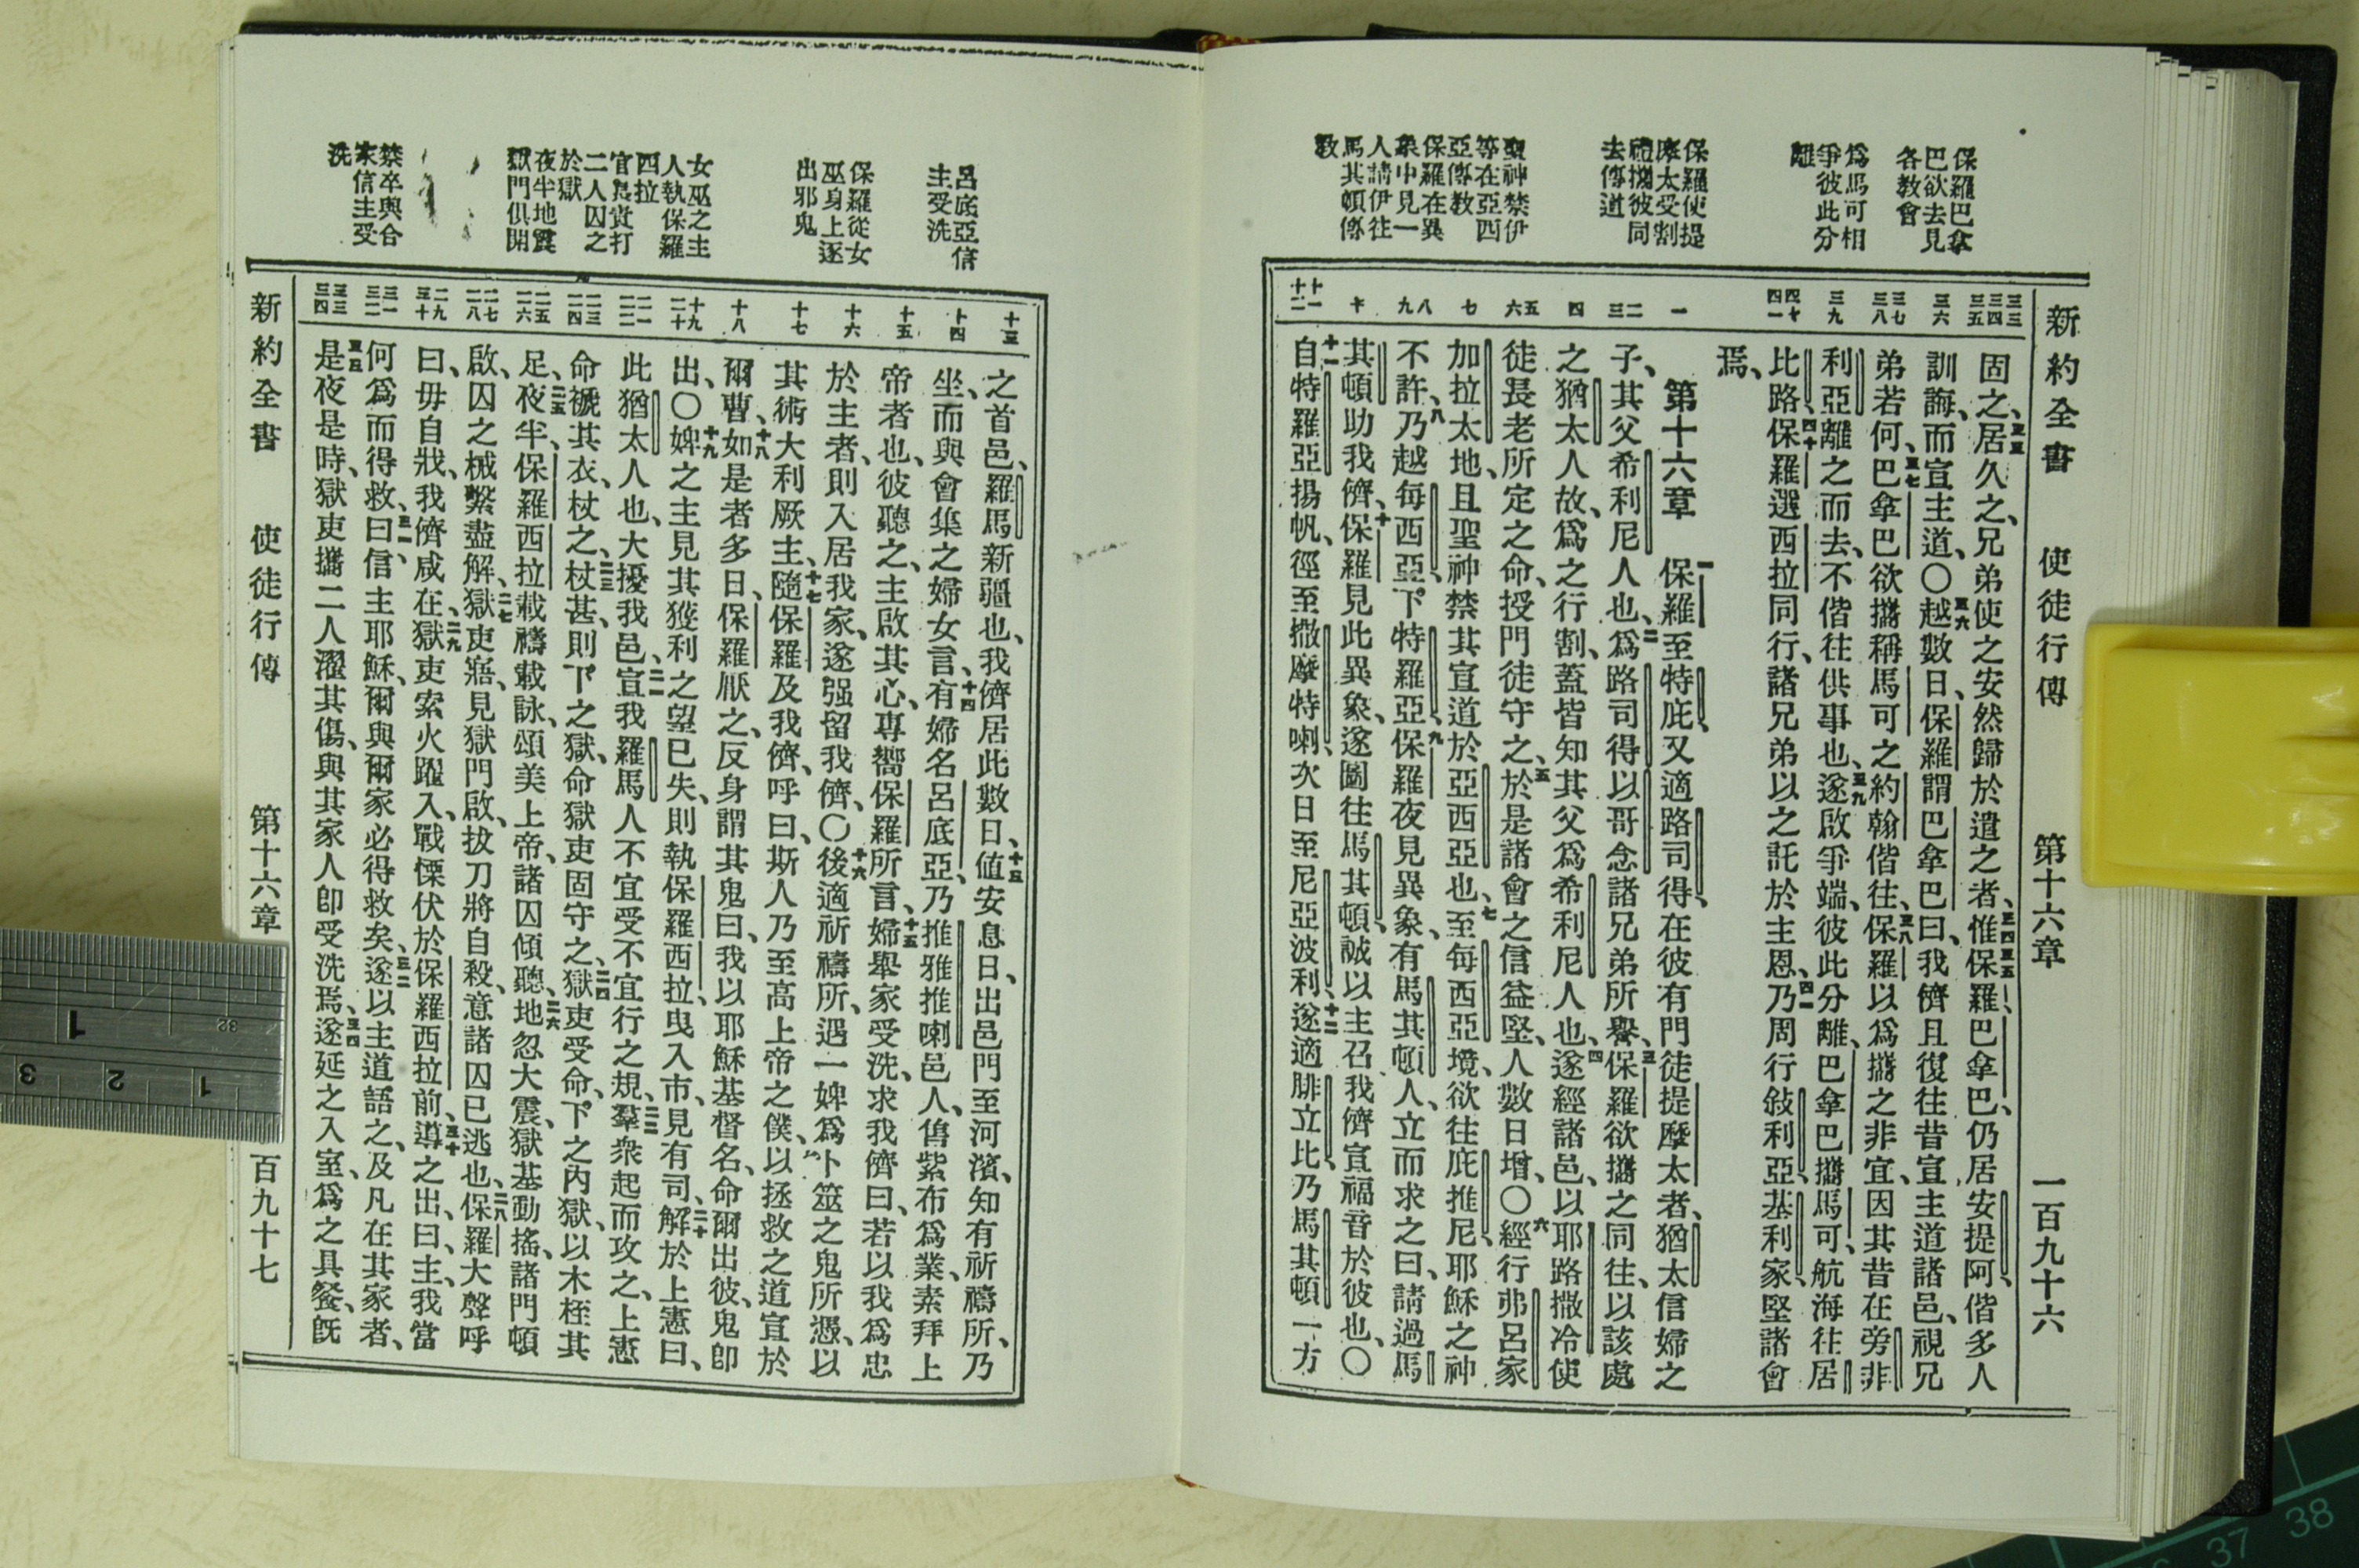 新約全書 使徒行傳 第十六章 一百九十六
保羅巴拿
巴欲去見
各教會
爲馬可相
爭彼此分
離
保羅使提
摩太受割
禮攜彼同
去傳道
聖神禁伊
等在亞西
亞傳教
保羅在異
象中見一
人請伊往
馬其頓傳
教
三三 三四 三五
三六
三七 三八
三九
四十 四一
一
二 三
四
五 六
七
八 九
十
十一 十二
固之、三三居久之、兄弟使之安然歸於遣之者、三四三五惟保羅、巴拿巴、仍居安提阿、偕多人
訓誨、而宣主道、〇三六越數日、保羅謂巴拿巴曰、我儕且復往昔宣主道諸邑、視兄
弟若何、三七巴拿巴欲攜稱馬可之約翰偕往、三八保羅以爲攜之非宜、因其昔在旁非
利亞離之而去、不偕往供事也、三九遂啟爭端、彼此分離、巴拿巴攜馬可、航海往居
比路、四十保羅選西拉同行、諸兄弟以之託於主恩、四一乃周行敍利亞、基利家、堅諸會
焉、
第十六章 一保羅至特庇、又適路司得、在彼有門徒提摩太者、猶太信婦之
子、其父希利尼人也、二爲路司得以哥念諸兄弟所譽、三保羅欲攜之同往、以該處
之猶太人故、爲之行割、蓋皆知其父爲希利尼人也、四遂經諸邑、以耶路撒冷使
徒長老所定之命、授門徒守之、五於是諸會之信益堅、人數日增、〇六經行弗呂家
加拉太地、且聖神禁其宣道於亞西亞也、七至每西亞境、欲往庇推尼、耶穌之神
不許、八乃越每西亞、下特羅亞、九保羅夜見異象、有馬其頓人、立而求之曰、請過馬
其頓助我儕、十保羅見此異象、遂圖往馬其頓、誠以主召我儕宣福音於彼也、〇
十一自特羅亞揚帆、徑至撒摩特喇、次日至尼亞波利、十二遂適腓立比、乃馬其頓一方
呂底亞信
主受洗
保羅從女
巫身上逐
出邪鬼
女巫之主
人執保羅
四拉
官長責打
二人囚之
於獄
夜半地震
獄門俱開
禁卒與合
家信主受
洗
十三
十四
十五
十六
十七
十八
十九 二十
二一 二二
二三 二四
二五 二六
二七 二八
二九 三十
三一 三二
三三 三四
之首邑、羅馬新疆也、我儕居此數日、十五値安息日、出邑門至河濱、知有祈禱所、乃
坐、而與會集之婦女言、十四有婦名呂底亞、乃推雅推喇邑人、售紫布爲業、素拜上
帝者也、彼聽之、主啟其心、專嚮保羅所言、十五婦舉家受洗、求我儕曰、若以我爲忠
於主者、則入居我家、遂强留我儕、〇十六後適祈禱所、遇一婢爲卜筮之鬼所憑、以
其術大利厥主、十七隨保羅及我儕、呼曰、斯人乃至高上帝之僕、以拯救之道宣於
爾曹、十八如是者多日、保羅厭之、反身謂其鬼曰、我以耶穌基督名、命爾出彼、鬼卽
出、〇十九婢之主見其獲利之望已失、則執保羅西拉、曳入市、見有司、二十解於上憲曰、
此猶太人也、大擾我邑、二一宣我羅馬人不宜受不宜行之規、二二羣衆起而攻之、上憲
命褫其衣、杖之、二三杖甚、則下之獄、命獄吏固守之、二四獄吏受命、下之內獄、以木桎其
足、二五夜半、保羅西拉載禱載詠、頌美上帝、諸囚傾聽、二六地忽大震、獄基動搖、諸門頓
啟、囚之械繫盡解、二七獄吏寤、見獄門啟、拔刀將自殺、意諸囚已逃也、二八保羅大聲呼
曰、毋自戕、我儕咸在、二九獄吏索火躍入、戰慄伏於保羅西拉前、三十導之出、曰、主、我當
何爲而得救、三一曰、信主耶穌、爾與爾家必得救矣、三二遂以主道語之、及凡在其家者、
三三是夜是時、獄吏攜二人濯其傷、與其家人卽受洗焉、三四遂延之入室、爲之具餐、旣
新約全書 使徒行傳 第十六章 百九十七
1
32
3 2 1
37 38